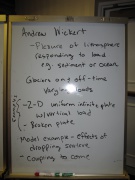 Andrew Wickert
- Flexure of lithosphere
responding to load
e.g. sediment or ocean
Glaciers and off-time
Varying loads
- 2-D uniform infinite plate
w/vertical load
- Broken plate
Model example - effects of
dropping sealeve
- Coupling to